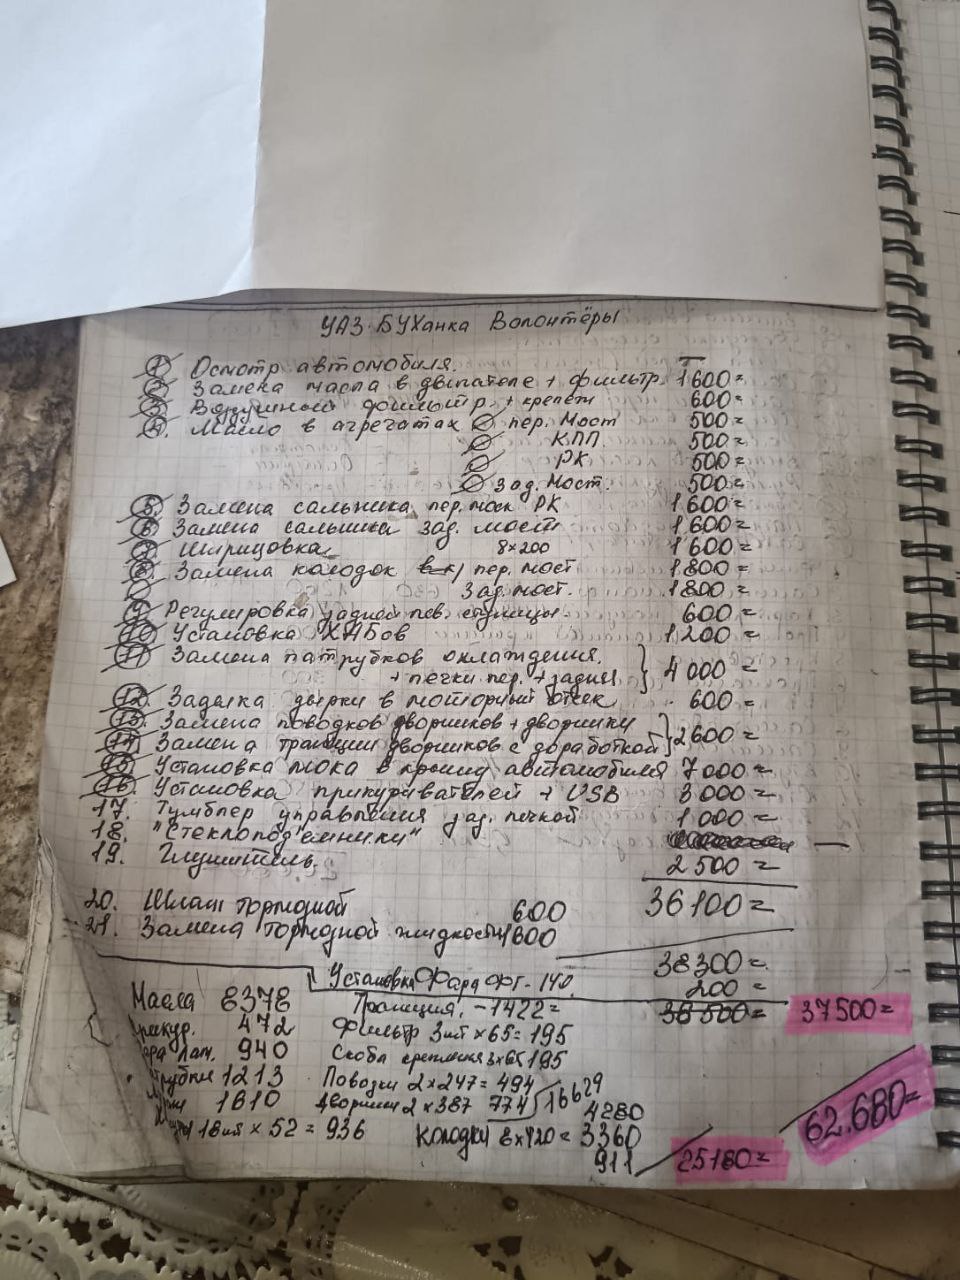 УАЗ. БУХанка Волонтёры
1 Осмотр автомобиля. —
2 Замена масла в двигателе + фильтр 1600=
3 Воздушный фильтр + крепеж 600=
4. Масло в агрегатах пер. Мост 500=
КПП. 500=
РК 500=
Зад. Мост. 500=
5. Замена сальника пер. мост РК 1600=
6 Замена сальника зад. мост 1600=
7 Шприцовка 8×200 1600=
8. Замена колодок пер. мост 1800=
Зад. мост. 1800=
9 Регулировка задней лев. ступицы 600=
10 Установка ХАБов 1200=
11 Замена патрубков охлаждения.
+ печки пер. + задняя } 4000=
12. Заделка дырки в моторный отсек 600=
13. Замена поводков дворников + дворники
14 Замена трапеции дворников с доработкой } 2600=
15 Установка люка в крышу автомобиля 7000=
16. Установка прикуривателей + USB 3000=
17. Тумблер управления зад. печкой 1000=
18. "Стеклоподъемники" —
19. Глушитель. 2500=
36100=
20. Шланг тормозной 600
21. Замена тормозной жидкости 1600
38300=
Установка Фара ФГ-140 200=
38500= 37500=
Масла 8378 Трапеция. -1422=
Прикур. 472 Фильтр 3шт × 65=195
940 Скоба крепления 3×65 195
1213 Поводки 2×247=494
1610 Дворники 2×387 774 16629
4280
18шт × 52 = 936 Колодки 8×420= 3360
911 25180= 62.680=